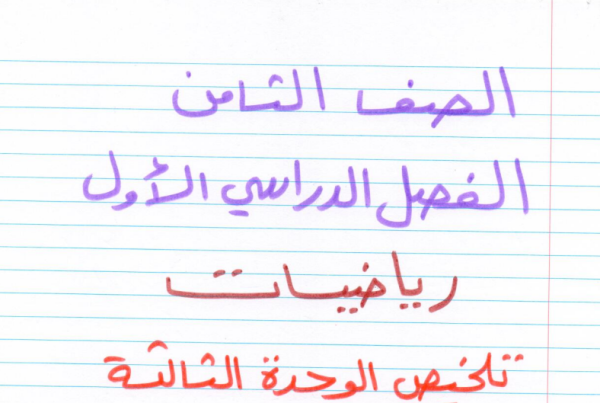 الصف الثامن
الفصل الدراسي الأول
رياضيات
تلخيص الوحدة الثالثة